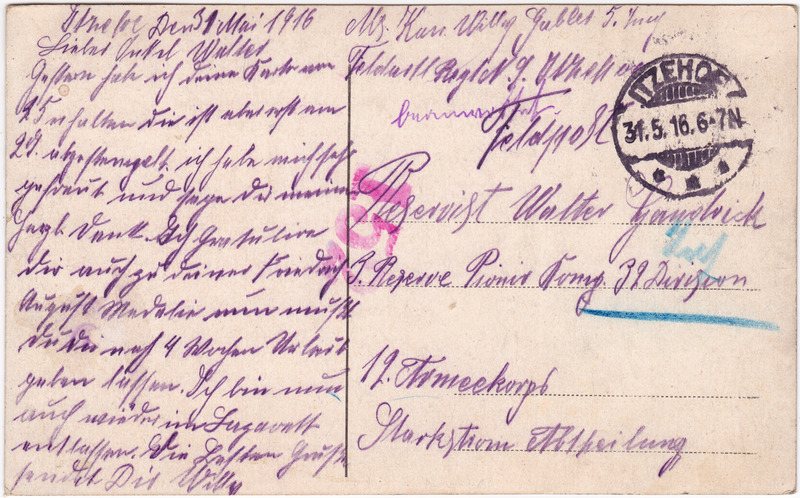 Itzehoe Den 31 Mai 1916
Lieber Onkel Walter
Gestern hab ich deine Karte vom
25 erhalten die ist aber erst am
29. abgestempelt, ich habe mich sehr
gefreut und sage dir meinen
herzl. Dank. Ich Gratulire
dir auch zu deiner Friedrich
August Medalie nun mußt
du dir noch 4 Wochen Urlaub
geben lassen. Ich bin nun
auch wieder im Lazarett
entlassen. Die Besten Grüße
sendet Dir Willy
Kan. Willy Gabler
Feldartl Reg. 9. Itzehoe
beantwortet
Feldpost
ITZEHOE
31.5.16.6-7N
Reservist Walter Handrick
3. Reserve Pionir Komp. 32 Division
12. Armeekorps
Starkstrom Abtheilung